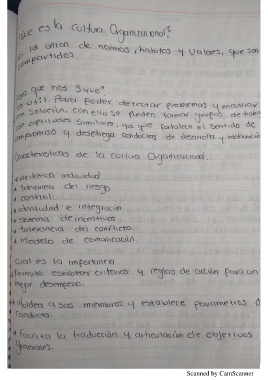 que es la cultura Organizacional?
Es la union de normas, habitos y valores, que son
compartidos
para que nos sirve?
es util para poder detectar problemas y encontrar
una solución, con ella se pueden formar grupos de trabajo
con aptitudes similares, ya que fortalece el sentido de
compromiso y desecha conductas de desarrollo y motivación
Caracteristicas de la cultura Organizacional.
* iniciativa individual
* tolerancia del riesgo
* control
* identidad e integración
* sistema de incentivos
* tolerancia del conflicto
* Modelo de comunicación.
cual es la importancia
* Permite establecer criterios y reglas de acción para un
mejor desempeño.
* Moldea a sus miembros y establece parametros de
conducta.
* facilita la traducción y articulación de objetivos
generales.
Scanned by CamScanner